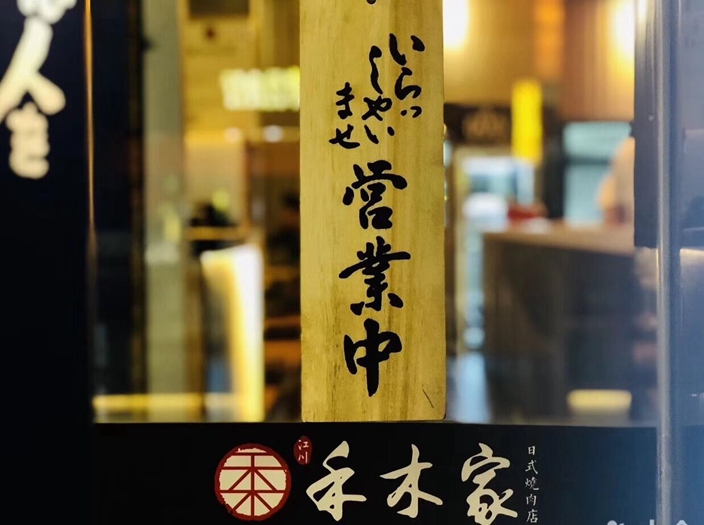 いらっ
しゃい
ませ
営業中
江川
禾木家
日式燒肉店